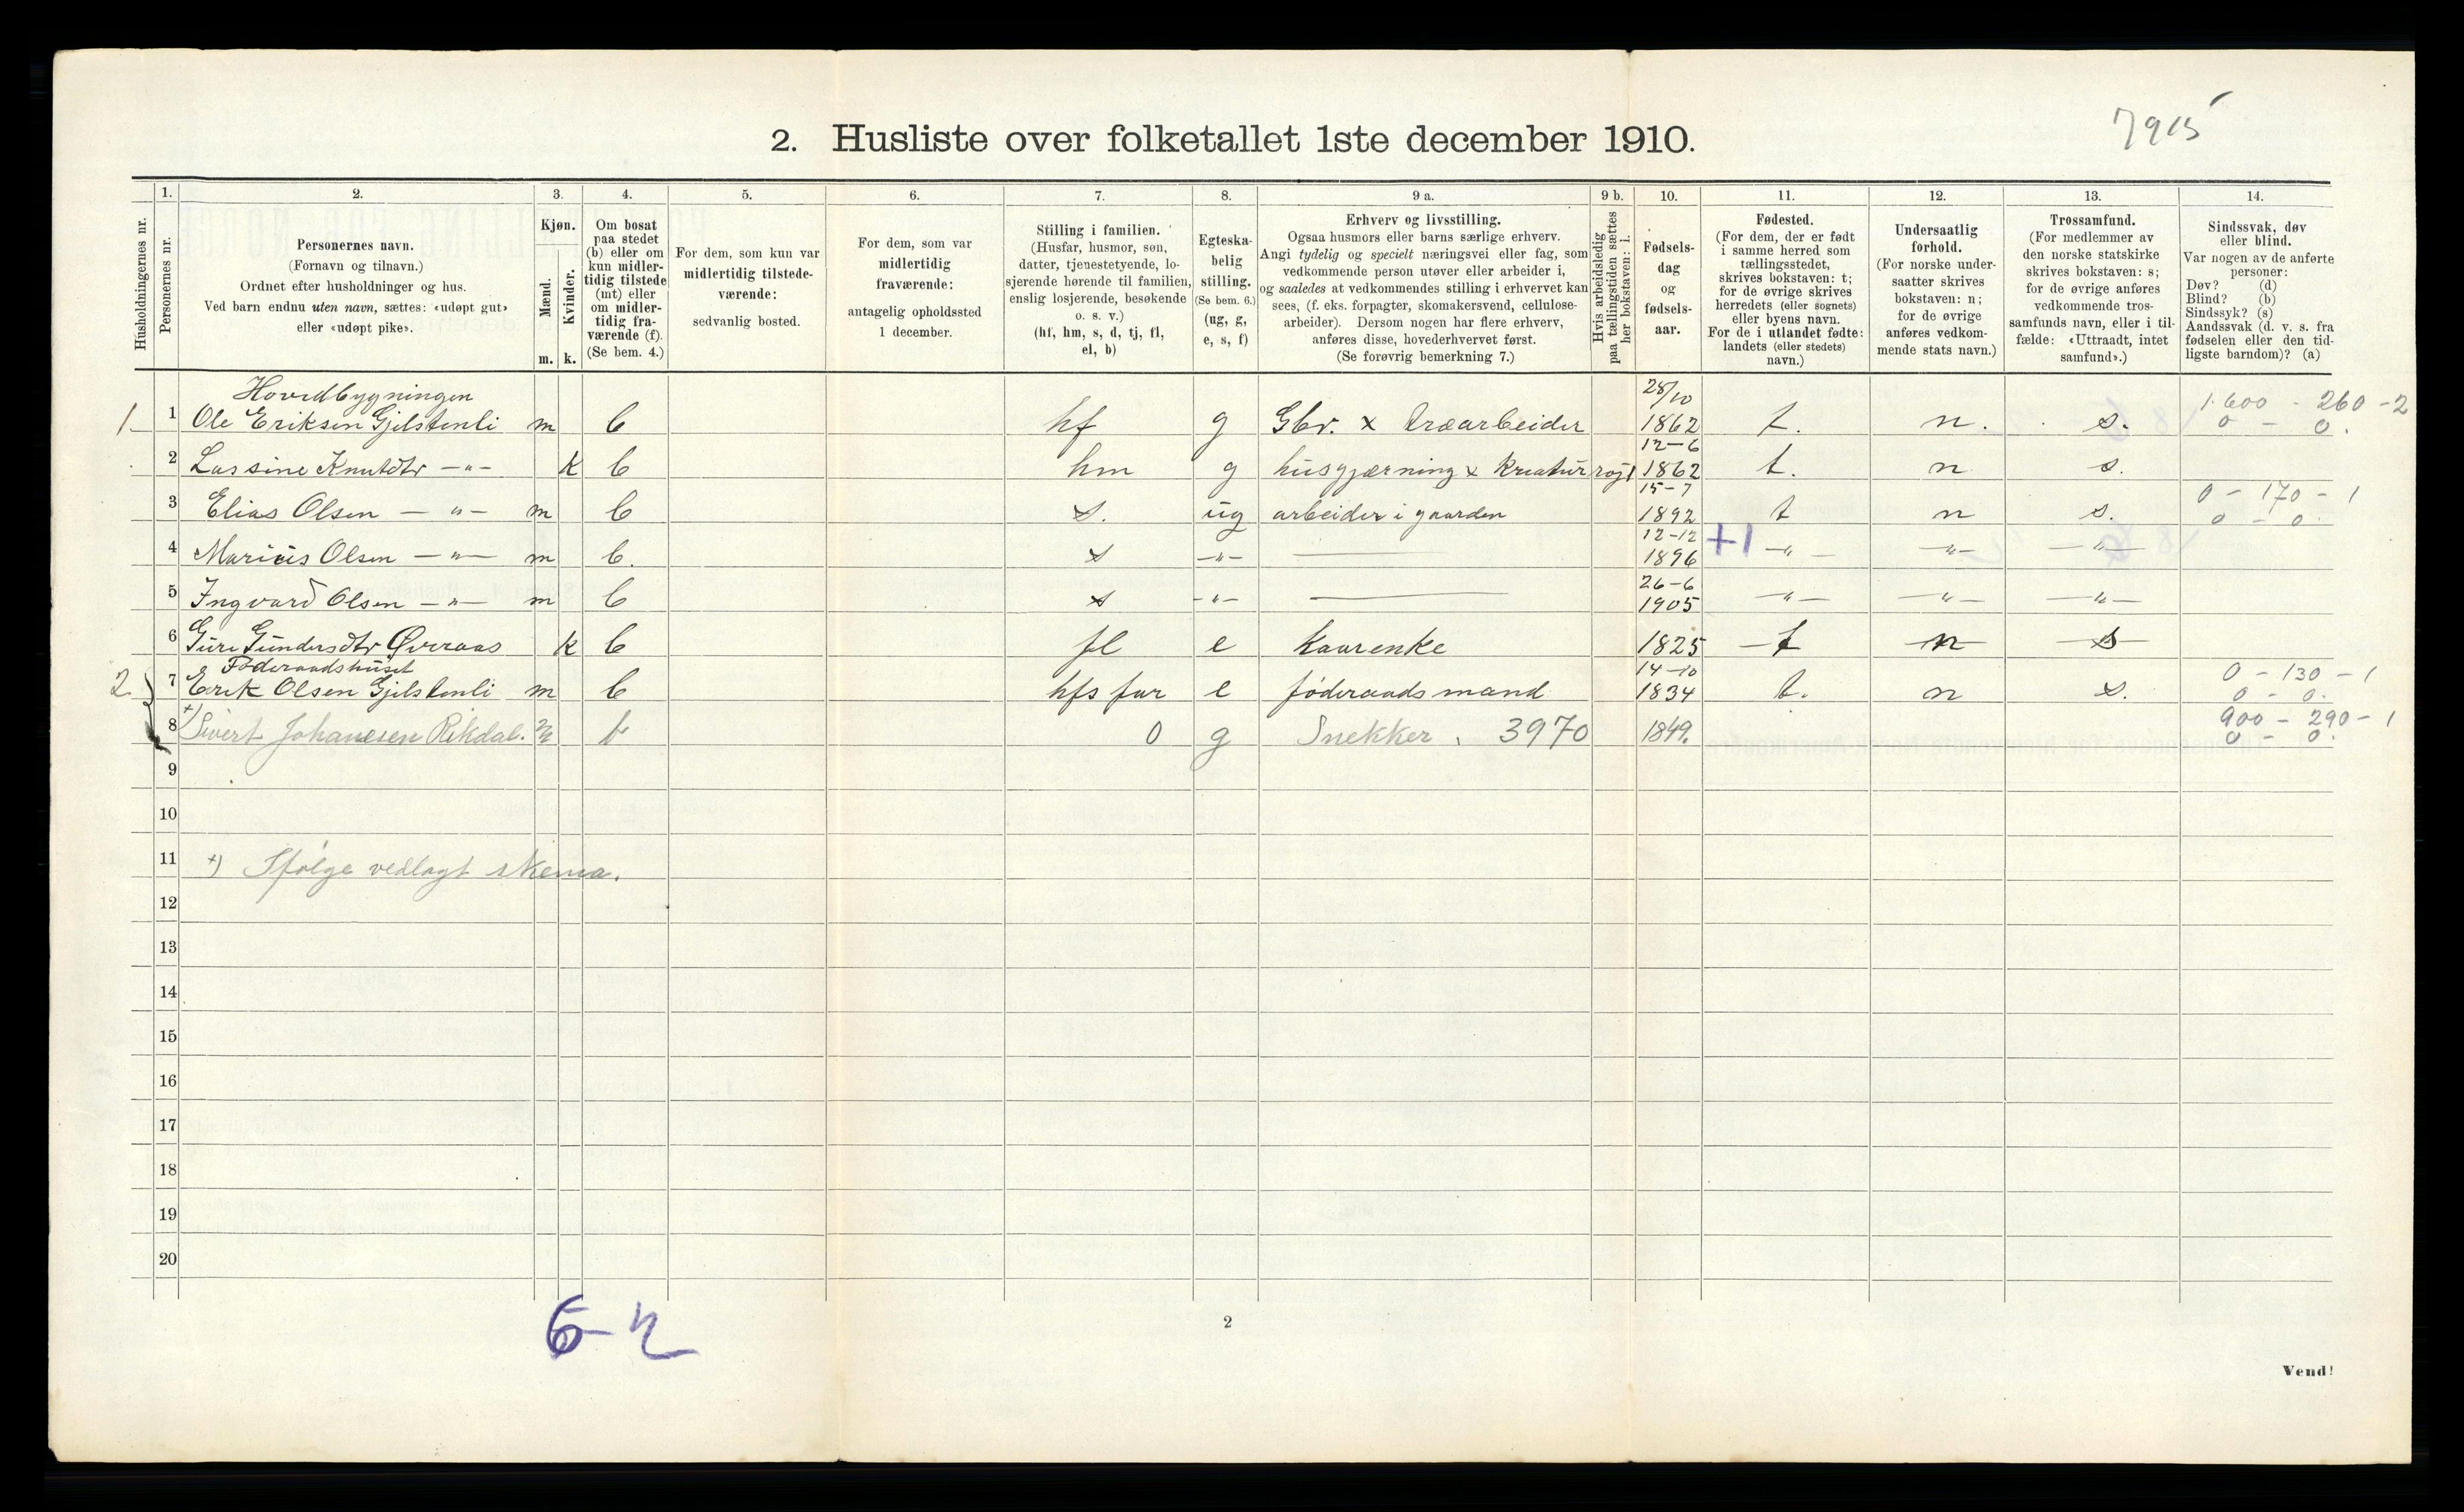 7915
2. Husliste over folketallet 1ste december 1910.
Husholdningernes nr.
1.
Personernes nr.
2.
Personernes navn.
(Fornavn og tilnavn.)
Ordnet efter husholdninger og hus.
Ved barn endnu uten navn, sættes: «udøpt gut»
eller «udøpt pike».
3.
Kjøn.
Mænd.
Kvinder.
m. k.
4.
Om bosat
paa stedet
(b) eller om
kun midler-
tidig tilstede
(mt) eller
om midler-
tidig fra-
værende (f).
(Se bem. 4.)
5.
For dem, som kun var
midlertidig tilstede-
værende:
sedvanlig bosted.
6.
For dem, som var
midlertidig
fraværende:
antagelig opholdssted
1 december.
7.
Stilling i familien.
(Husfar, husmor, søn,
datter, tjenestetyende, lo-
sjerende hørende til familien,
enslig losjerende, besøkende
o. s. v.)
(hf, hm, s, d, tj, fl,
el, b)
8.
Egteska-
belig
stilling.
(Se bem. 6.)
(ug, g,
e, s, f)
9 a.
Erhverv og livsstilling.
Ogsaa husmors eller barns særlige erhverv.
Angi tydelig og specielt næringsvei eller fag, som
vedkommende person utøver eller arbeider i,
og saaledes at vedkommendes stilling i erhvervet kan
sees, (f. eks. forpagter, skomakersvend, cellulose-
arbeider). Dersom nogen har flere erhverv,
anføres disse, hovederhvervet først.
(Se forøvrig bemerkning 7.)
9 b.
Hvis arbeidsledig
paa tællingstiden sættes
her bokstaven: l.
10.
Fødsels-
dag
og
fødsels-
aar.
11.
Fødested.
(For dem, der er født
i samme herred som
tællingsstedet,
skrives bokstaven: t;
for de øvrige skrives
herredets (eller sognets)
eller byens navn.
For de i utlandet fødte:
landets (eller stedets)
navn.)
12.
Undersaatlig
forhold.
(For norske under-
saatter skrives
bokstaven: n;
for de øvrige
anføres vedkom-
mende stats navn.)
13.
Trossamfund.
(For medlemmer av
den norske statskirke
skrives bokstaven: s;
for de øvrige anføres
vedkommende tros-
samfunds navn, eller i til-
fælde: «Uttraadt, intet
samfund».)
14.
Sindssvak, døv
eller blind.
Var nogen av de anførte
personer:
Døv? (d)
Blind? (b)
Sindssyk? (s)
Aandssvak (d. v. s. fra
fødselen eller den tid-
ligste barndom)? (a)
Hovedbygningen 28/10 1.600 - 260 - 2
1 1 Ole Eriksen Gjelstenli m b hf g Gbr. x træarbeider 1862 t. n. s. 0 - 0.
12-6
2 Lassine Knutdtr —"— k b hm g husgjærning x kreaturrøgt 1862 t. n s.
15-7 0 - 170 - 1
3 Elias Olsen —"— m b s. ug arbeider i gaarden 1892 t n s. 0 - 0.
12-12
4 Marius Olsen —"— m b. s —"— 1896 +1 —"— —"— —"—
26-6
5 Ingvard Olsen —"— m b s —"— 1905 —"— —"— —"—
6 Guri Gundersdtr Øveraas k b fl e kaarenke 1825 t n s
Føderaadshuset 14-10 0 - 130 - 1
2 7 Erik Olsen Gjelstenli m b hfs far e føderaadsmand 1834 t. n s. 0 - 0.
900 - 290 - 1
8 +) Sivert Johanesen Rikdal. m b 0 g Snekker. 3970 1849. 0 - 0.
9
10
11 +) Ifølge vedlagt skema.
12
13
14
15
16
17
18
19
20
6-2
2
Vend!